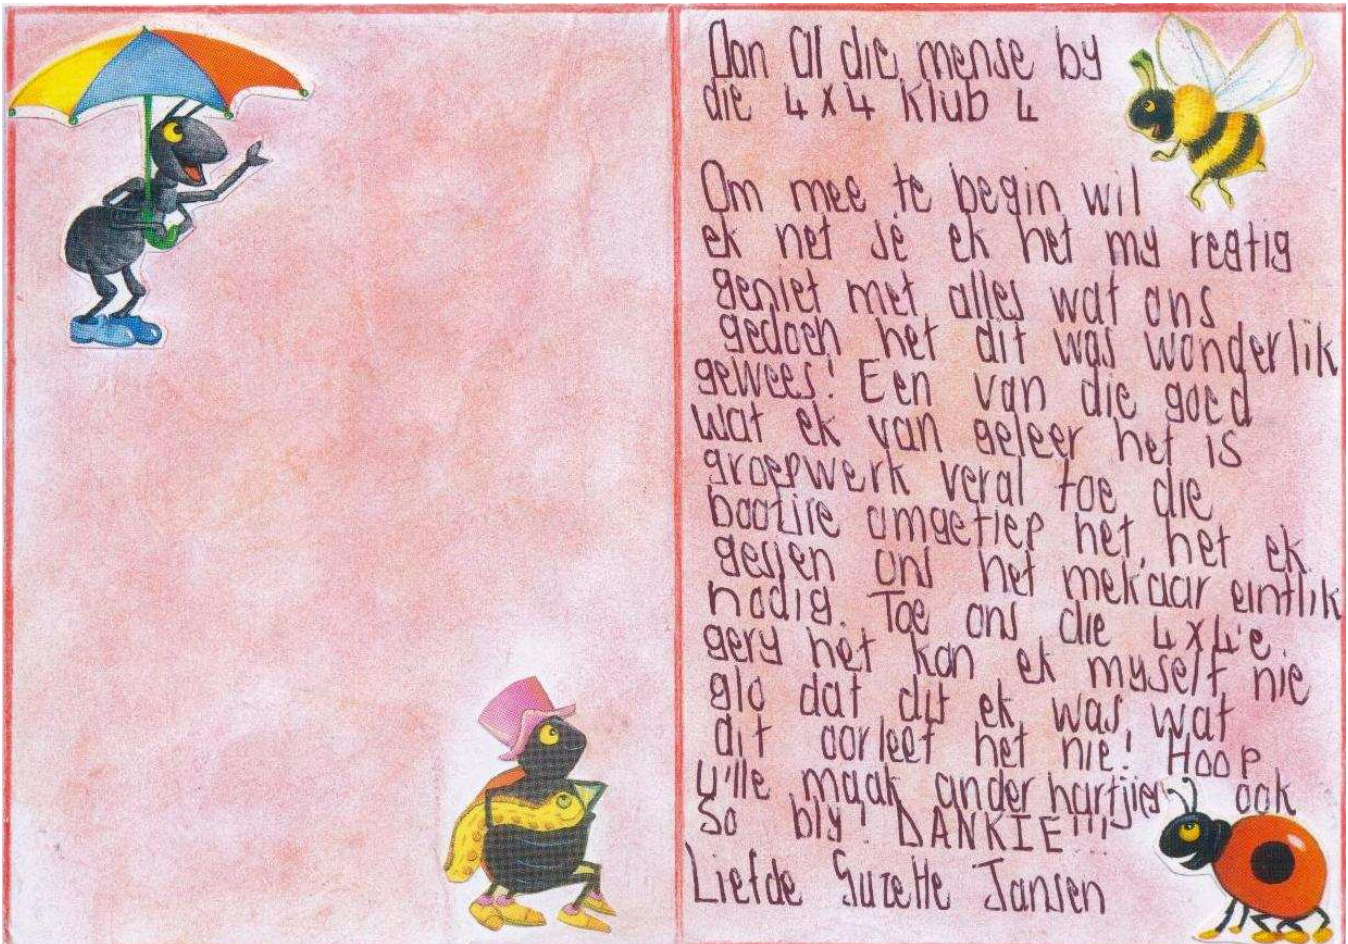 Aan Al die mense by
die 4x4 Klub 4
Om mee te begin wil
ek net sê ek het my regtig
geniet met alles wat ons
gedoen het dit was wonderlik
gewees! Een van die goed
wat ek van geleer het is
groepwerk veral toe die
bootjie omgetiep het, het ek
gesien ons het mekaar eintlik
nodig. Toe ons die 4x4'e
gery het kon ek myself nie
glo dat dit ek was, wat
dit oorleef het nie! Hoop
u'lle maak ander hartjies ook
so bly! DANKIE!!!
Liefde Suzette Jansen